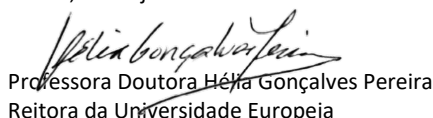 Hélia Gonçalves Pereira
Professora Doutora Hélia Gonçalves Pereira
Reitora da Universidade Europeia